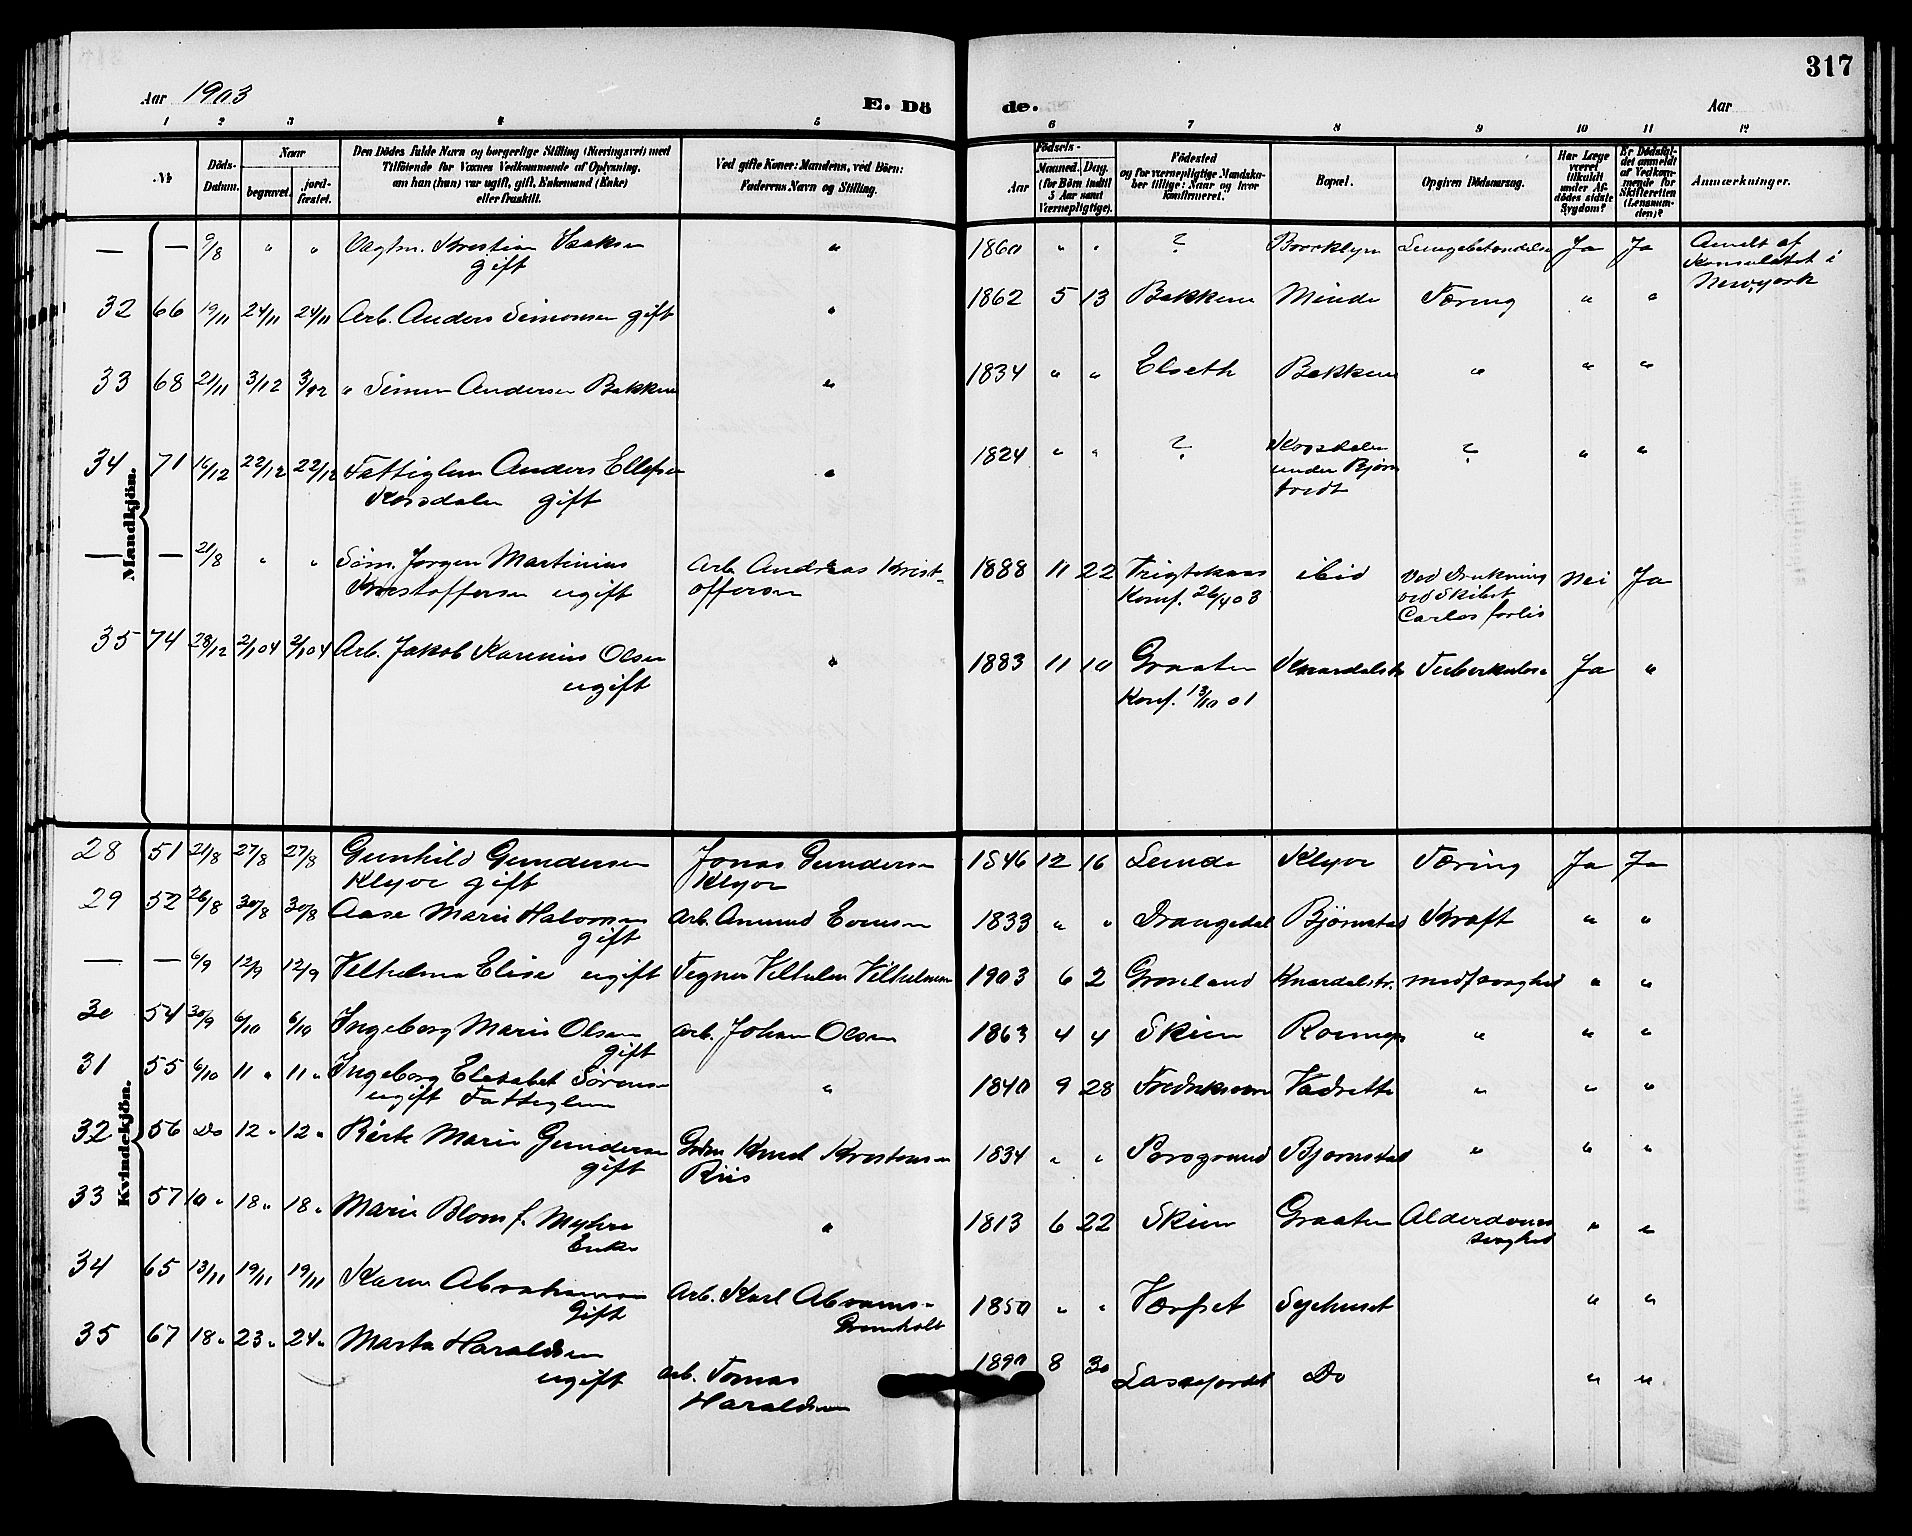 317
Aar 1903
E. Dö
de.
Aar
1 2 3 4 5 6 7 8 9 10 11 12
№
Döds-
Datum.
Naar
begravet.
jord-
fæstet.
Den Dödes fulde Navn og borgerlige Stilling (Næringsvei) med
Tilföiende for Voxnes Vedkommende af Oplysning,
om han (hun) var ugift, gift, Enkemand (Enke)
eller fraskilt.
Ved gifte Koner: Mandens, ved Börn:
Faderens Navn og Stilling.
Födsels-
Aar
Maaned. Dag.
(for Börn indtil
5 Aar samt
Værnepligtige).
Födested
og for værnepligtige Mandska-
ber tillige: Naar og hvor
konfirmeret.
Bopæl.
Opgiven Dödsaarsag.
Har Læge
været
tilkaldt
under Af-
dödes sidste
Sygdom?
Er Dödsfal-
det anmeldt
af Vedkom-
mende for
Skifteretten
(Lensman-
den)?
Anmærkninger.
Mandkjön.
— — 9/8 " " Kristian Isaksen " 1860 " " ? Boorklyn Lungebetændelse Ja Ja Anmelt af
gift Konsulatet i
Newyork
32 66 19/11 24/11 24/11 Arb. Anders Simonsen gift " 1862 5 13 Bakken Minde Tæring " "
33 68 21/11 3/12 3/12 " Simen Andersen Bakken " 1834 " " Elseth Bakken " " "
34 71 16/12 22/12 22/12 Fattiglem Anders Ellefsen " 1824 " " ? Korsdalen ? " "
Korsdalen gift under Bjørn
tvedt
— — 21/8 " " Søm. Jørgen Martinius Arb. Andreas Krist- 1888 11 22 Frigstekaas ibid Ved Drukning Nei Ja
Kristoffersen ugift offersen Konf. 26/4 03 ved Skibet
Carlos forlis
35 74 28/12 2/1 04 2/1 04 Arb. Jakob Karenius Olsen " 1883 11 10 Graaten Knardalstr. Tuberkulose Ja "
ugift Konf. 13/10 01
Kvindekjön.
28 51 21/8 27/8 27/8 Gunhild Gundersen Jonas Gundersen 1846 12 16 Lunde Klyve Tæring Ja Ja
Klyve gift Klyve
29 52 26/8 30/8 30/8 Aase Marie Halvorsen Arb. Amund Evensen 1833 " " Drangedal Bjørnstad Kræft " "
gift
— — 6/9 12/9 12/9 Vilhelma Elise ugift Tegner Vilhelm Vilhelmsen 1903 6 2 Grønland Knardalstr. medf. svaghed " "
30 54 30/9 6/10 6/10 Ingeborg Marie Olsen Arb. Johan Olsen 1863 4 4 Skien " " "
gift
31 55 6/10 11 " 11 " Ingeborg Elisabet Sørensen " 1840 9 28 Fredriksværn Vadrette " " "
ugift Fattiglem
32 56 Do 12 " 12 " Marie Gundersen Knud Kristensen 1834 " " Porsgrund Bjørnstad " " "
gift Riis
33 57 10 " 18 " 18 " Marie Blom f. Myhre " 1813 6 22 Skien Graaten Alderdoms " "
Enke svaghed
34 65 13/11 19/11 19/11 Karen Abrahamsen Arb. Karl Abrams- 1850 " " Sygehuset " "
Gift Grønholt
35 67 18 " 23 " 24 " Marta Haraldsen 1890 8 30 Lassefjordet Do " "
ugift Arb. Tomas
Haraldsen